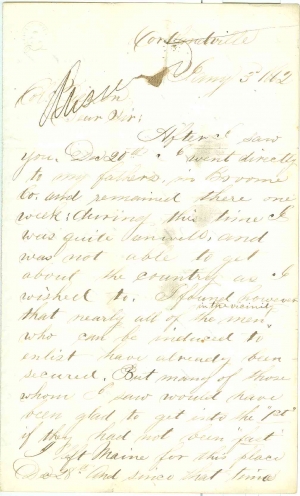 Cortlandville
Jany 5th 1862
Dear Sir;
After I saw
you Dec 20th I went directly
to my fathers, in Broome
Co. and remained there one
week; during this time I
was quite unwell, and
was not able to get
about the country as I
wished to. I found however
in the vicinity
that nearly all of the men
who can be induced to
enlist have already been
secured. But many of those
whom I saw would have
been glad to get into the
if they had not been "fast"
I left Maine for this place
Dec 28th and since that time